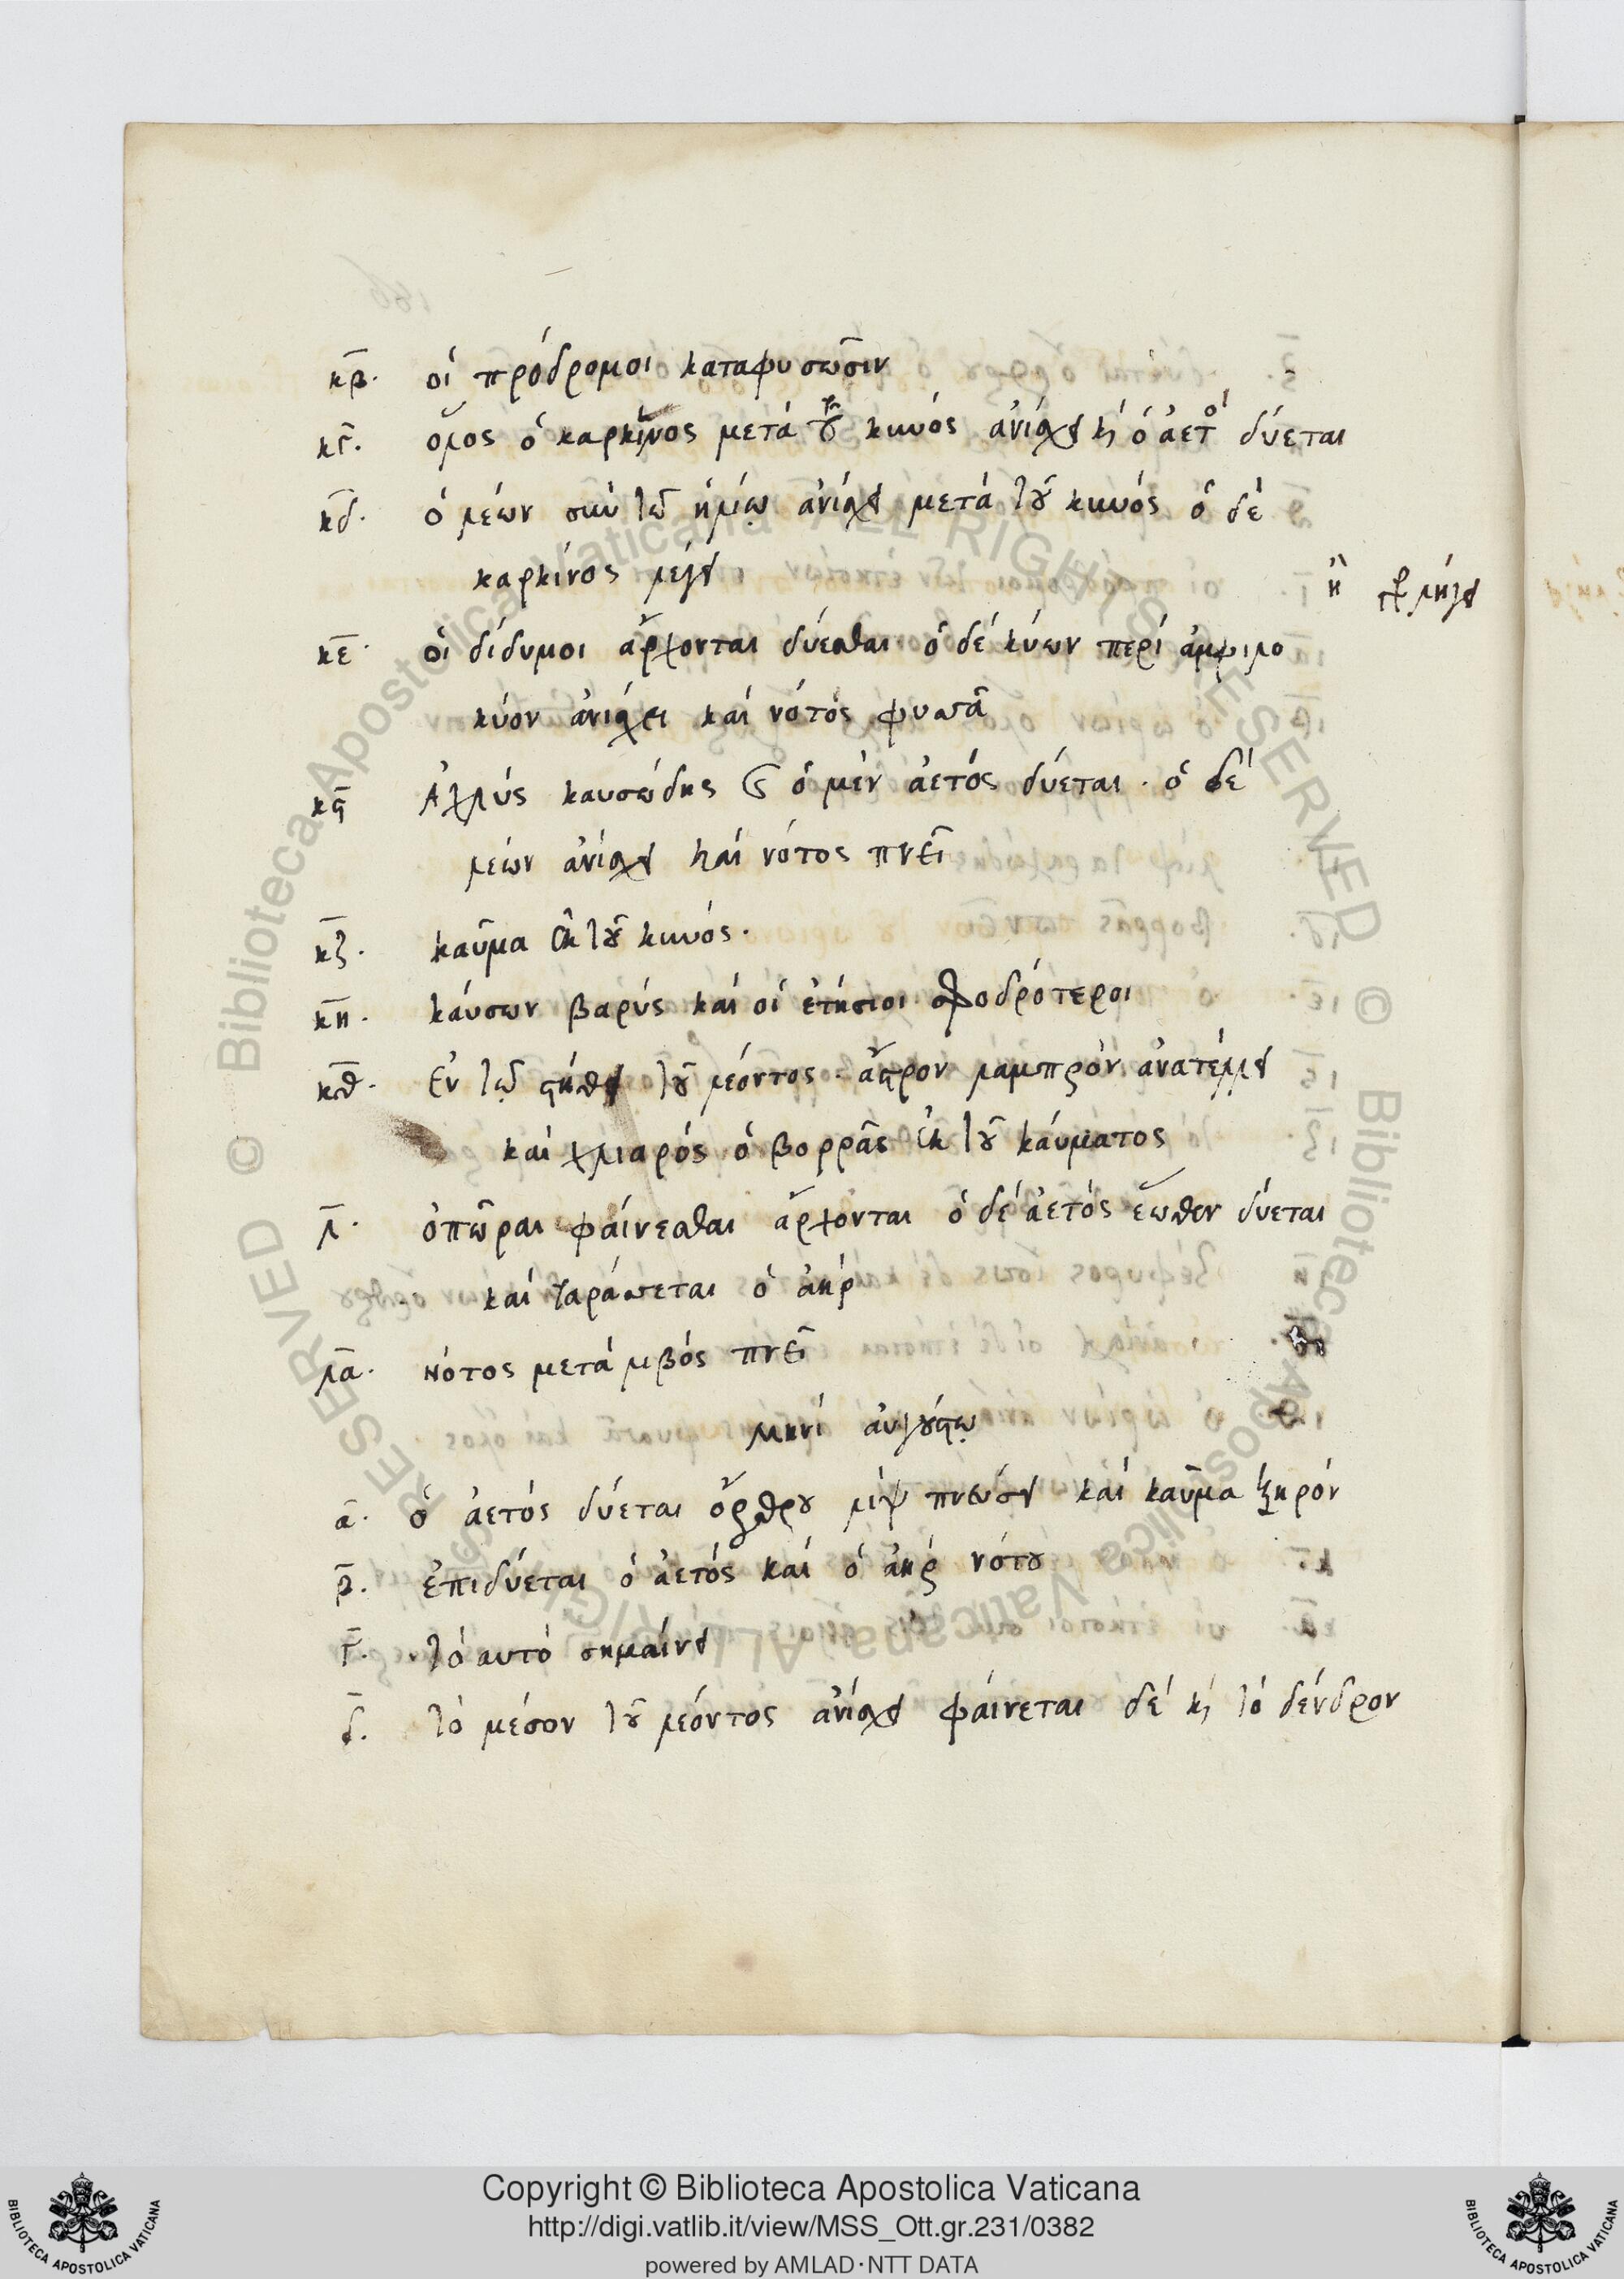 κβ. οἱ πρόδρομοι καταφυσῶσιν
κγ. ὅλος ὁ καρκῖνος μετὰ τοῦ κυνός ἀνίσχει κὶ ὁ ἀετὸς δύεται
κδ. ὁ λέων σὺν τῶ ἡλίῳ ἀνίσχει μετά τοῦ κυνός ὁ δὲ
καρκίνος λέγει
ἢ λήγει
κε. οἱ δίδυμοι ἄρχονται δύεσθαι ὁ δὲ κύων περί ἀμφιλο
κύον ἀνίσχει καί νότος φυσᾶ
κϛ Ἀχλύς καυσώδης ὁ μὲν ἀετός δύεται. ὁ δὲ
λέων ἀνίσχει καί νότος πνεῖ
κζ. καῦμα ἐκ τοῦ κυνός.
κη. καύσων βαρύς καί οἱ ἐτήσιοι σφοδρότεροι
κθ. Ἐν τῷ στήθει τοῦ λέοντος. ἄστρον λαμπρόν ἀνατέλλει
καί χλιαρός ὁ βορρᾶς ἐκ τοῦ καύματος
λ. ὀπῶραι φαίνεσθαι ἄρχονται ὁ δὲ ἀετός ἕωθεν δύεται
καί ταράσσεται ὁ ἀήρ
λα. νότος μετά λιβός πνεῖ
μηνί αὐγούστῳ
α. ὁ ἀετός δύεται ὄρθρου λίψ πνεύσει καί καῦμα ξηρόν
β. ἐπιδύεται ὁ ἀετός καί ὁ ἀήρ νότου
γ. τό αυτό σημαίνει
δ. τό μέσον τοῦ λέοντος ἀνίσχει φαίνεται δὲ κὶ τό δένδρον
© Biblioteca Apostolica Vaticana ALL RIGHTS RESERVED © Biblioteca Apostolica Vaticana ALL RIGHTS RESERVED
Copyright © Biblioteca Apostolica Vaticana
http://digi.vatlib.it/view/MSS_Ott.gr.231/0382
powered by AMLAD·NTT DATA
BIBLIOTECA APOSTOLICA VATICANA
BIBLIOTECA APOSTOLICA VATICANA